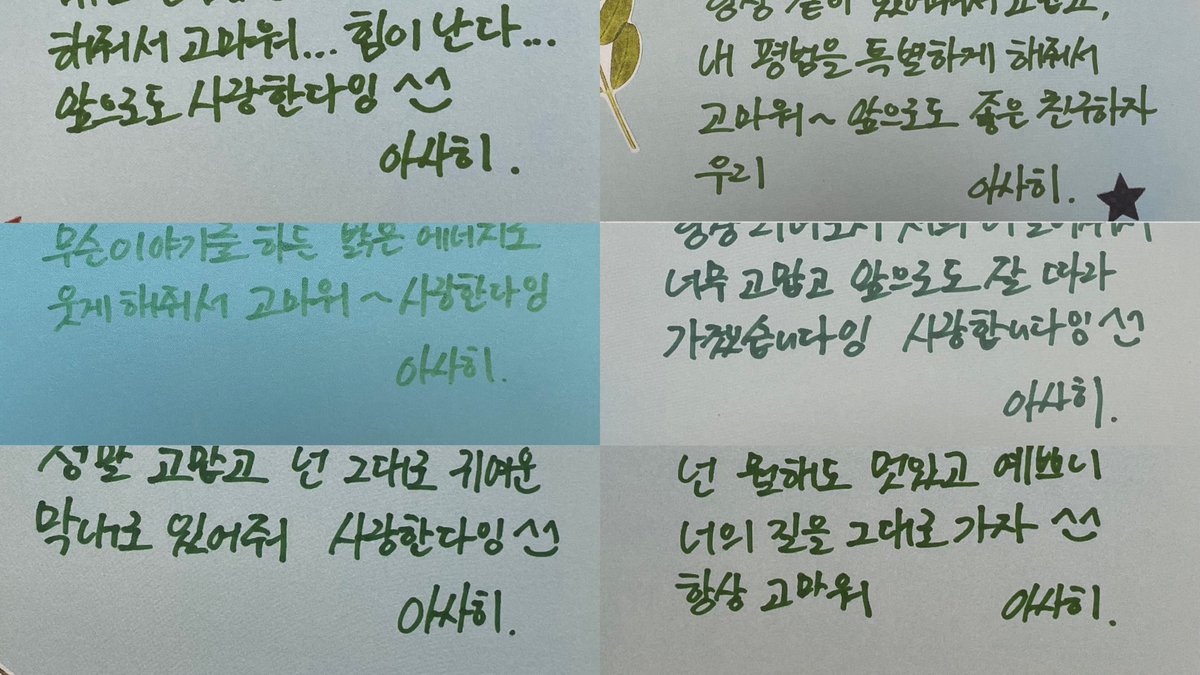 해줘서 고마워... 힘이 난다...
앞으로도 사랑한다잉 ^^
아사히.
항상 같이 있어줘서 고맙고,
내 평범을 특별하게 해줘서
고마워~ 앞으로도 좋은 친구하자
우리
아사히.
무슨이야기로 하든 밝은 에너지로
웃게 해줘서 고마워~사랑한다잉
아사히.
너무 고맙고 앞으로도 잘 따라
가겠습니다잉 사랑합니다잉^^
아사히.
정말 고맙고 넌 그대로 귀여운
막내로 있어줘 사랑한다잉^^
아사히.
넌 뭘해도 멋있고 예쁘니
너의 길을 그대로 가자 ^^
항상 고마워
아사히.